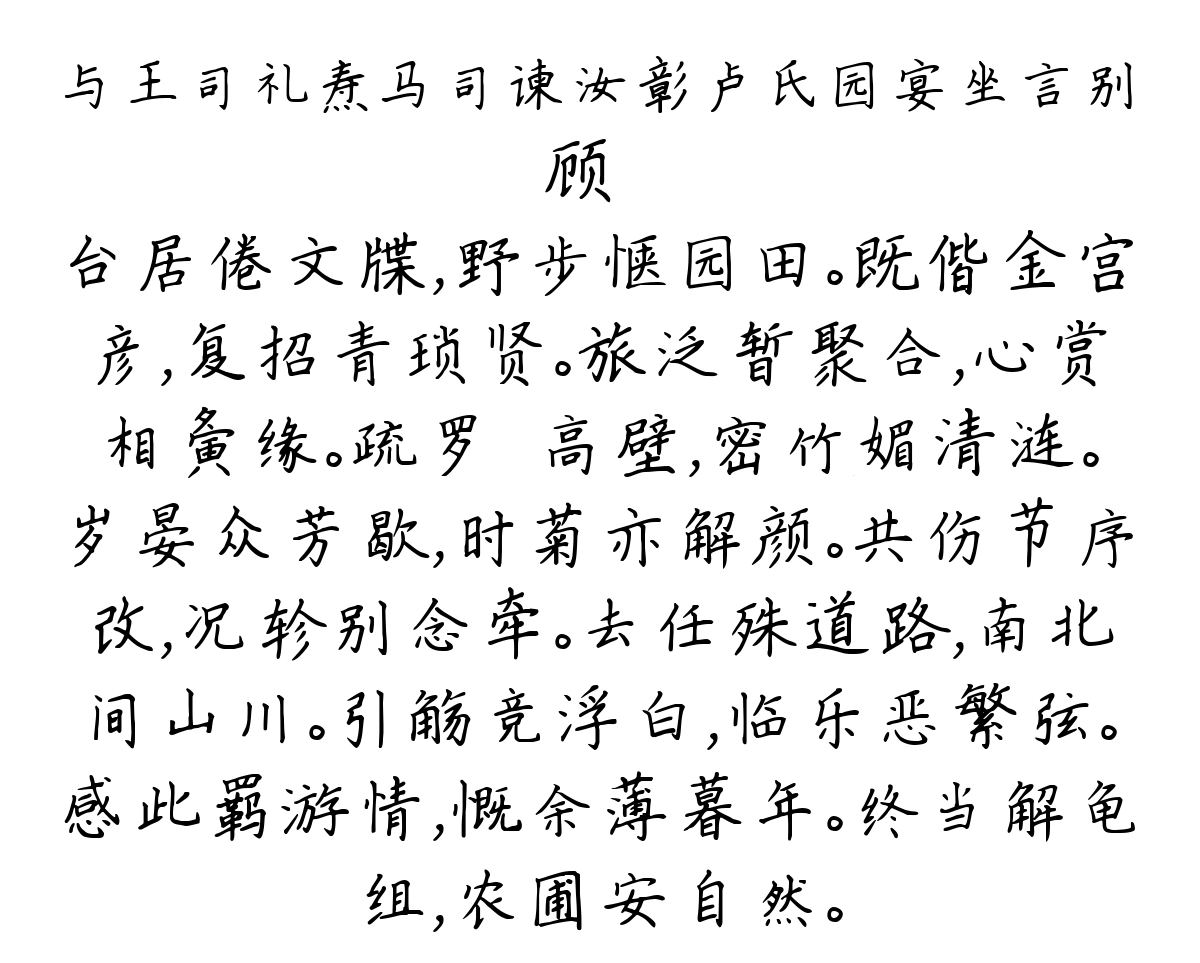 与王司礼焘马司谏汝彰卢氏园宴坐言别
顾
台居倦文牒,野步惬园田。既偕金宫
彦,复招青琐贤。旅泛暂聚合,心赏
相夤缘。疏罗 高壁,密竹媚清涟。
岁晏众芳歇,时菊亦解颜。共伤节序
改,况轸别念牵。去任殊道路,南北
间山川。引觞竞浮白,临乐恶繁弦。
感此羁游情,慨余薄暮年。终当解龟
组,农圃安自然。